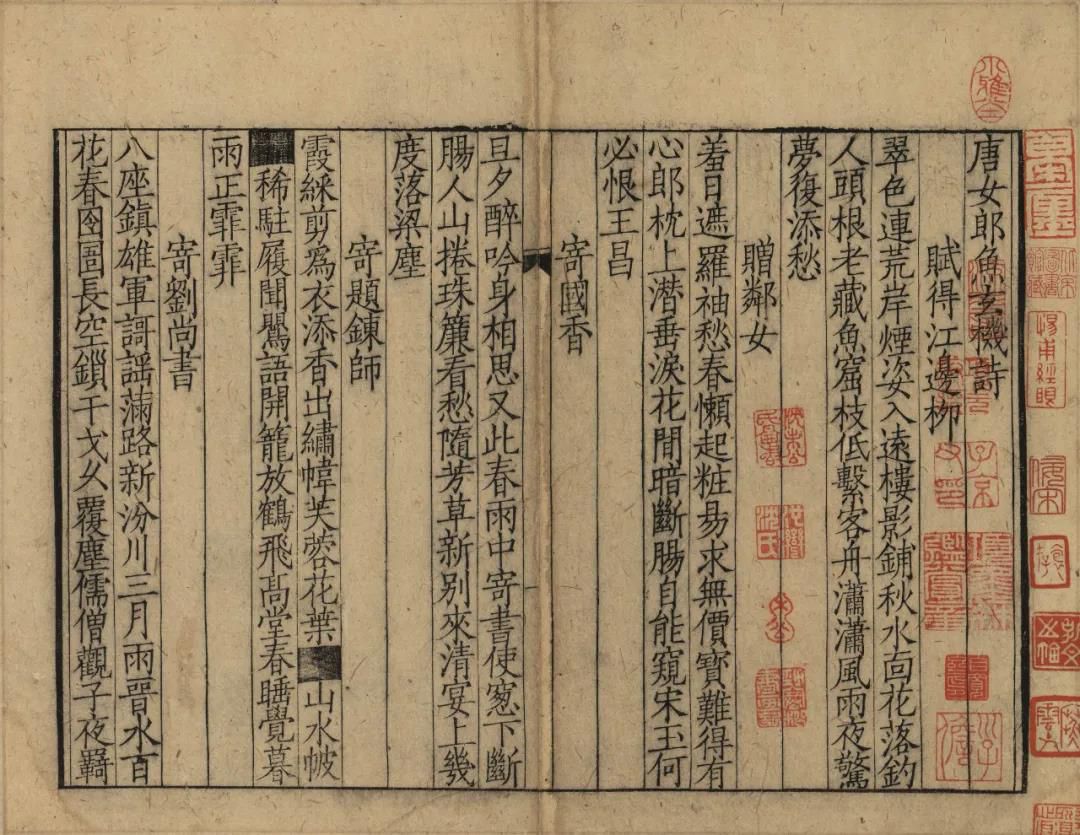 唐女郎魚玄機詩
賦得江邊柳
翠色連荒岸煙姿入遠樓影鋪秋水面花落釣
人頭根老藏魚窟枝低繫客舟瀟瀟風雨夜驚
夢復添愁
贈鄰女
羞日遮羅袖愁春懶起粧易求無價寶難得有
心郎枕上潛垂淚花間暗斷腸自能窺宋玉何
必恨王昌
寄國香
旦夕醉吟身相思又此春雨中寄書使窻下斷
腸人山捲珠簾看愁隨芳草新别來清宴上幾
度落梁塵
寄題鍊師
霞綵剪爲衣添香出繡幃芙蓉花葉山水帔
稀駐履聞鸎語開籠放鶴飛高堂春睡覺暮
雨正霏霏
寄劉尚書
八座鎮雄軍謌謡滿路新汾川三月雨晉水百
花春囹圄長空鎻干戈久覆塵儒僧觀子夜羇